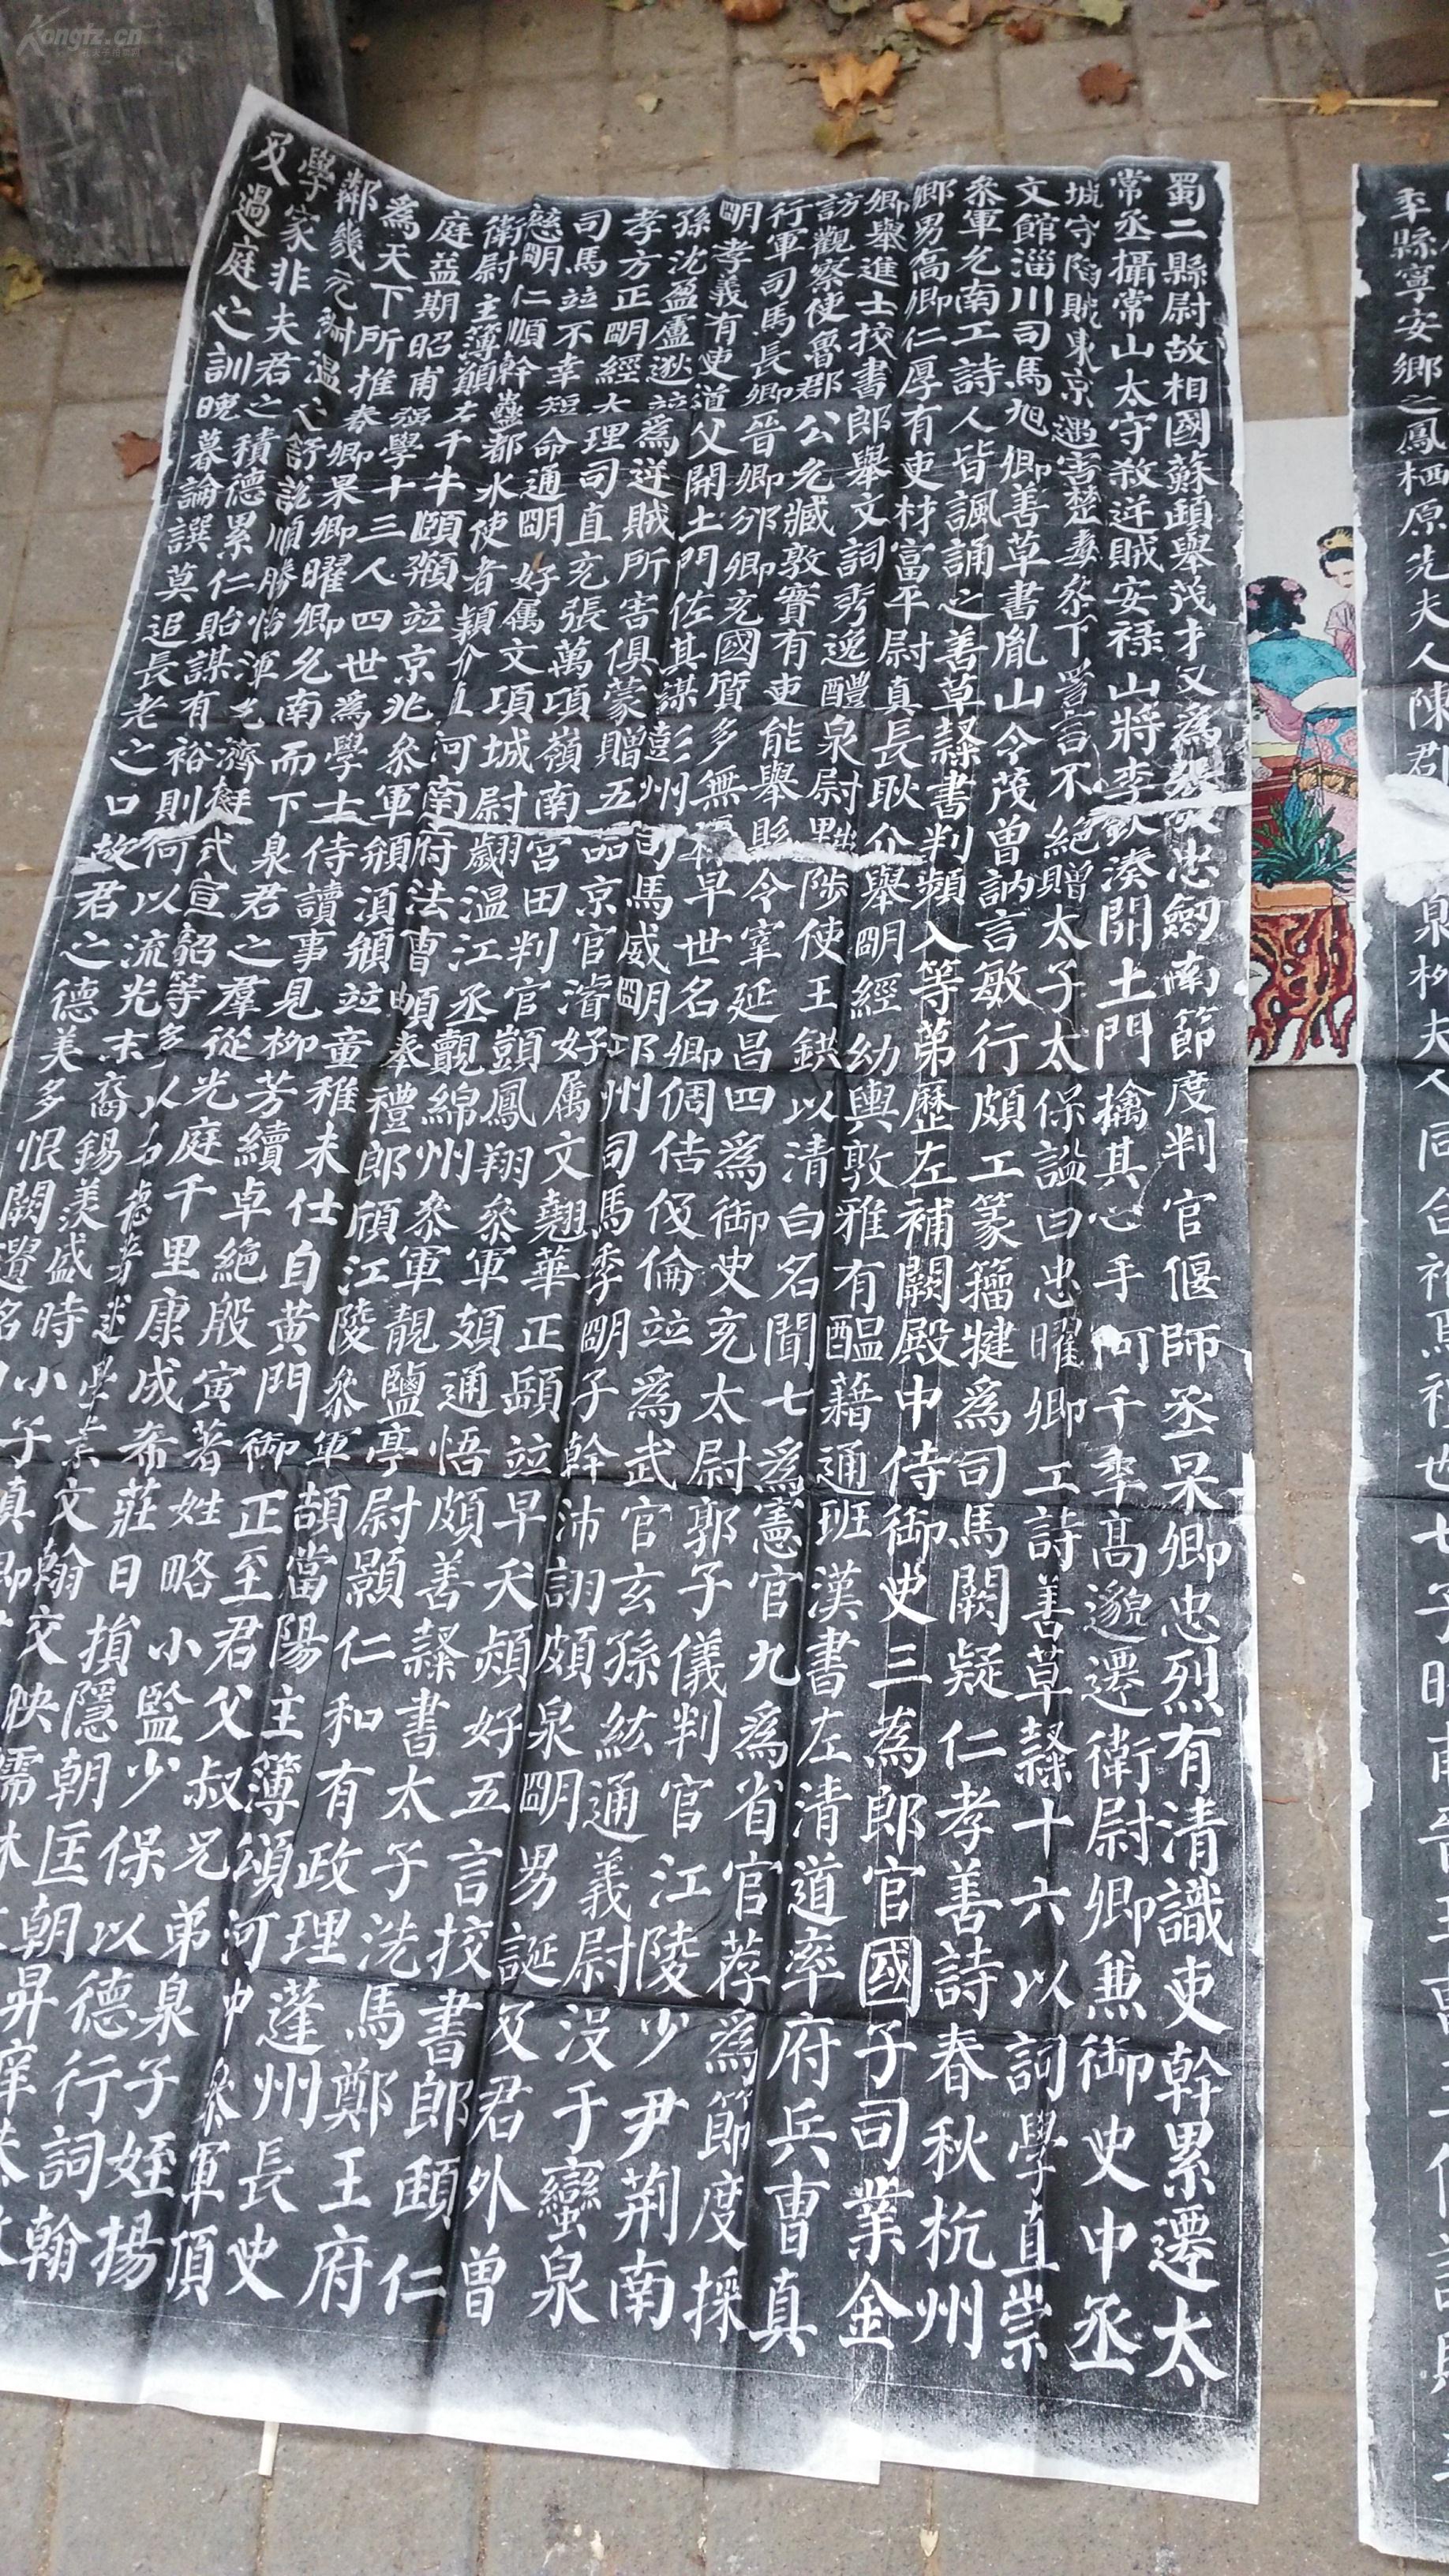 季縣寧安鄉之鳳栖原先夫人陳郡
柳夫人同合祔焉禮也七子昕甫晉王
蜀二縣尉故相國蘇頲舉茂才又為張敬忠劒南節度判官偃師丞杲卿忠烈有清識吏幹累遷太
常丞攝常山太守殺逆賊安祿山將李欽湊開土門擒其心手何千年高邈遷衛尉卿兼御史中丞
城守陷賊東京遇害楚毒參下詈言不絕贈太子太保謚曰忠曜卿工詩善草隸十六以詞學直崇
文館淄川司馬旭卿善草書胤山令茂曾訥言敏行頗工篆籀犍為司馬闕疑仁孝善詩春秋杭州
參軍允南工詩人皆諷誦之善草隸書判頻入等第歷左補闕殿中侍御史三為郎官國子司業金
鄉男喬卿仁厚有吏材富平尉真長耿介舉明經幼輿敦雅有醞藉通班漢書左清道率府兵曹真
卿舉進士挍書郎舉文詞秀逸醴泉尉黜陟使王鉷以清白名聞七為憲官九為省官荐為節度採
訪觀察使魯郡公允臧敦實有吏能舉縣令宰延昌四為御史充太尉郭子儀判官江陵少尹荊南
行軍司馬長卿晉卿邠卿充國質多無祿早世名卿倜佶伋倫竝為武官玄孫紘通義尉沒于蠻泉
明孝義有吏道父開土門佐其謀彭州司馬威明邛州司馬季明子幹沛詡頗泉明男誕及君外曾
孫沈盈盧逖竝為逆賊所害俱蒙贈五品京官濬好屬文翹華正頵竝早夭熲好五言挍書郎頲仁
孝方正明經大理司直充張萬頃嶺南營田判官顗鳳翔參軍頗通悟頗善隸書太子洗馬鄭王府
司馬竝不幸短命通明好屬文項城尉翽溫江丞覿綿州參軍靚鹽亭尉顥仁和有政理蓬州長史
慈明仁順幹蠱都水使者穎介直河南府法曹頔奉禮郎頎江陵參軍頡當陽主簿頌河中參軍頂
衛尉主簿願左千牛頤頫竝京兆參軍頯須頖竝童稚未仕自黃門御正至君父叔兄弟泉子姪揚
庭益期昭甫強學十三人四世為學士侍讀事見柳芳續卓絕殷寅著姓略小監少保以德行詞翰
為天下所推春卿杲卿曜卿允南而下泉君之羣從光庭千里康成希莊日損隱朝匡朝昇庠
鄰幾元淑溫之舒說順勝怡渾允濟挺式宣韶等多以名德著述學業文翰交映儒林
學家非夫君之積德累仁貽謀有裕則何以流光末裔錫羨盛時小子真卿
及過庭之訓曉暮論譔莫追長老之口故君之德美多恨闕遺名